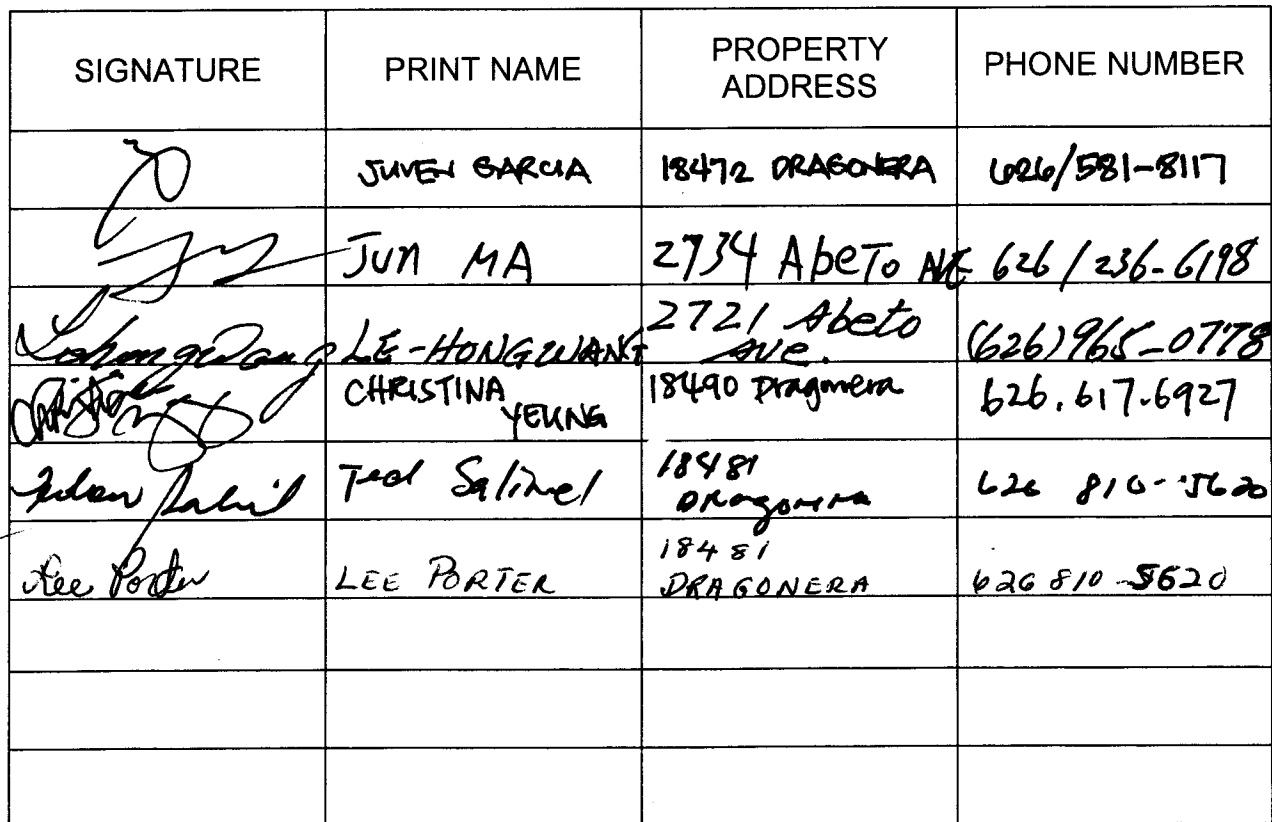 SIGNATURE PRINT NAME PROPERTY ADDRESS PHONE NUMBER
JUVEN GARCIA 18472 DRAGONERA 626/581-8117
JUN MA 2734 AbeTo AVE 626/236-6198
Lehongwang LE-HONGWANG 2721 Abeto Ave. (626)965-0778
CHRISTINA YEUNG 18490 Dragonera 626.617.6927
Ted 18481 DRagonera 626 810-5620
Lee Porter LEE PORTER 18481 DRAGONERA 626 810-5620